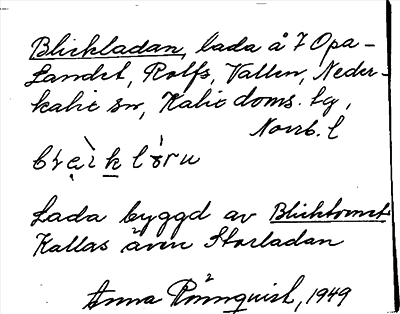 Blickladan, lada å 7 Opa-
Landet, Rolfs, Vallen, Neder-
kalix sn, Kalix doms. tg,
Norrb. l
Lada byggd av Blicktomet
Kallas även Storladan
Anna Rönnquist, 1949